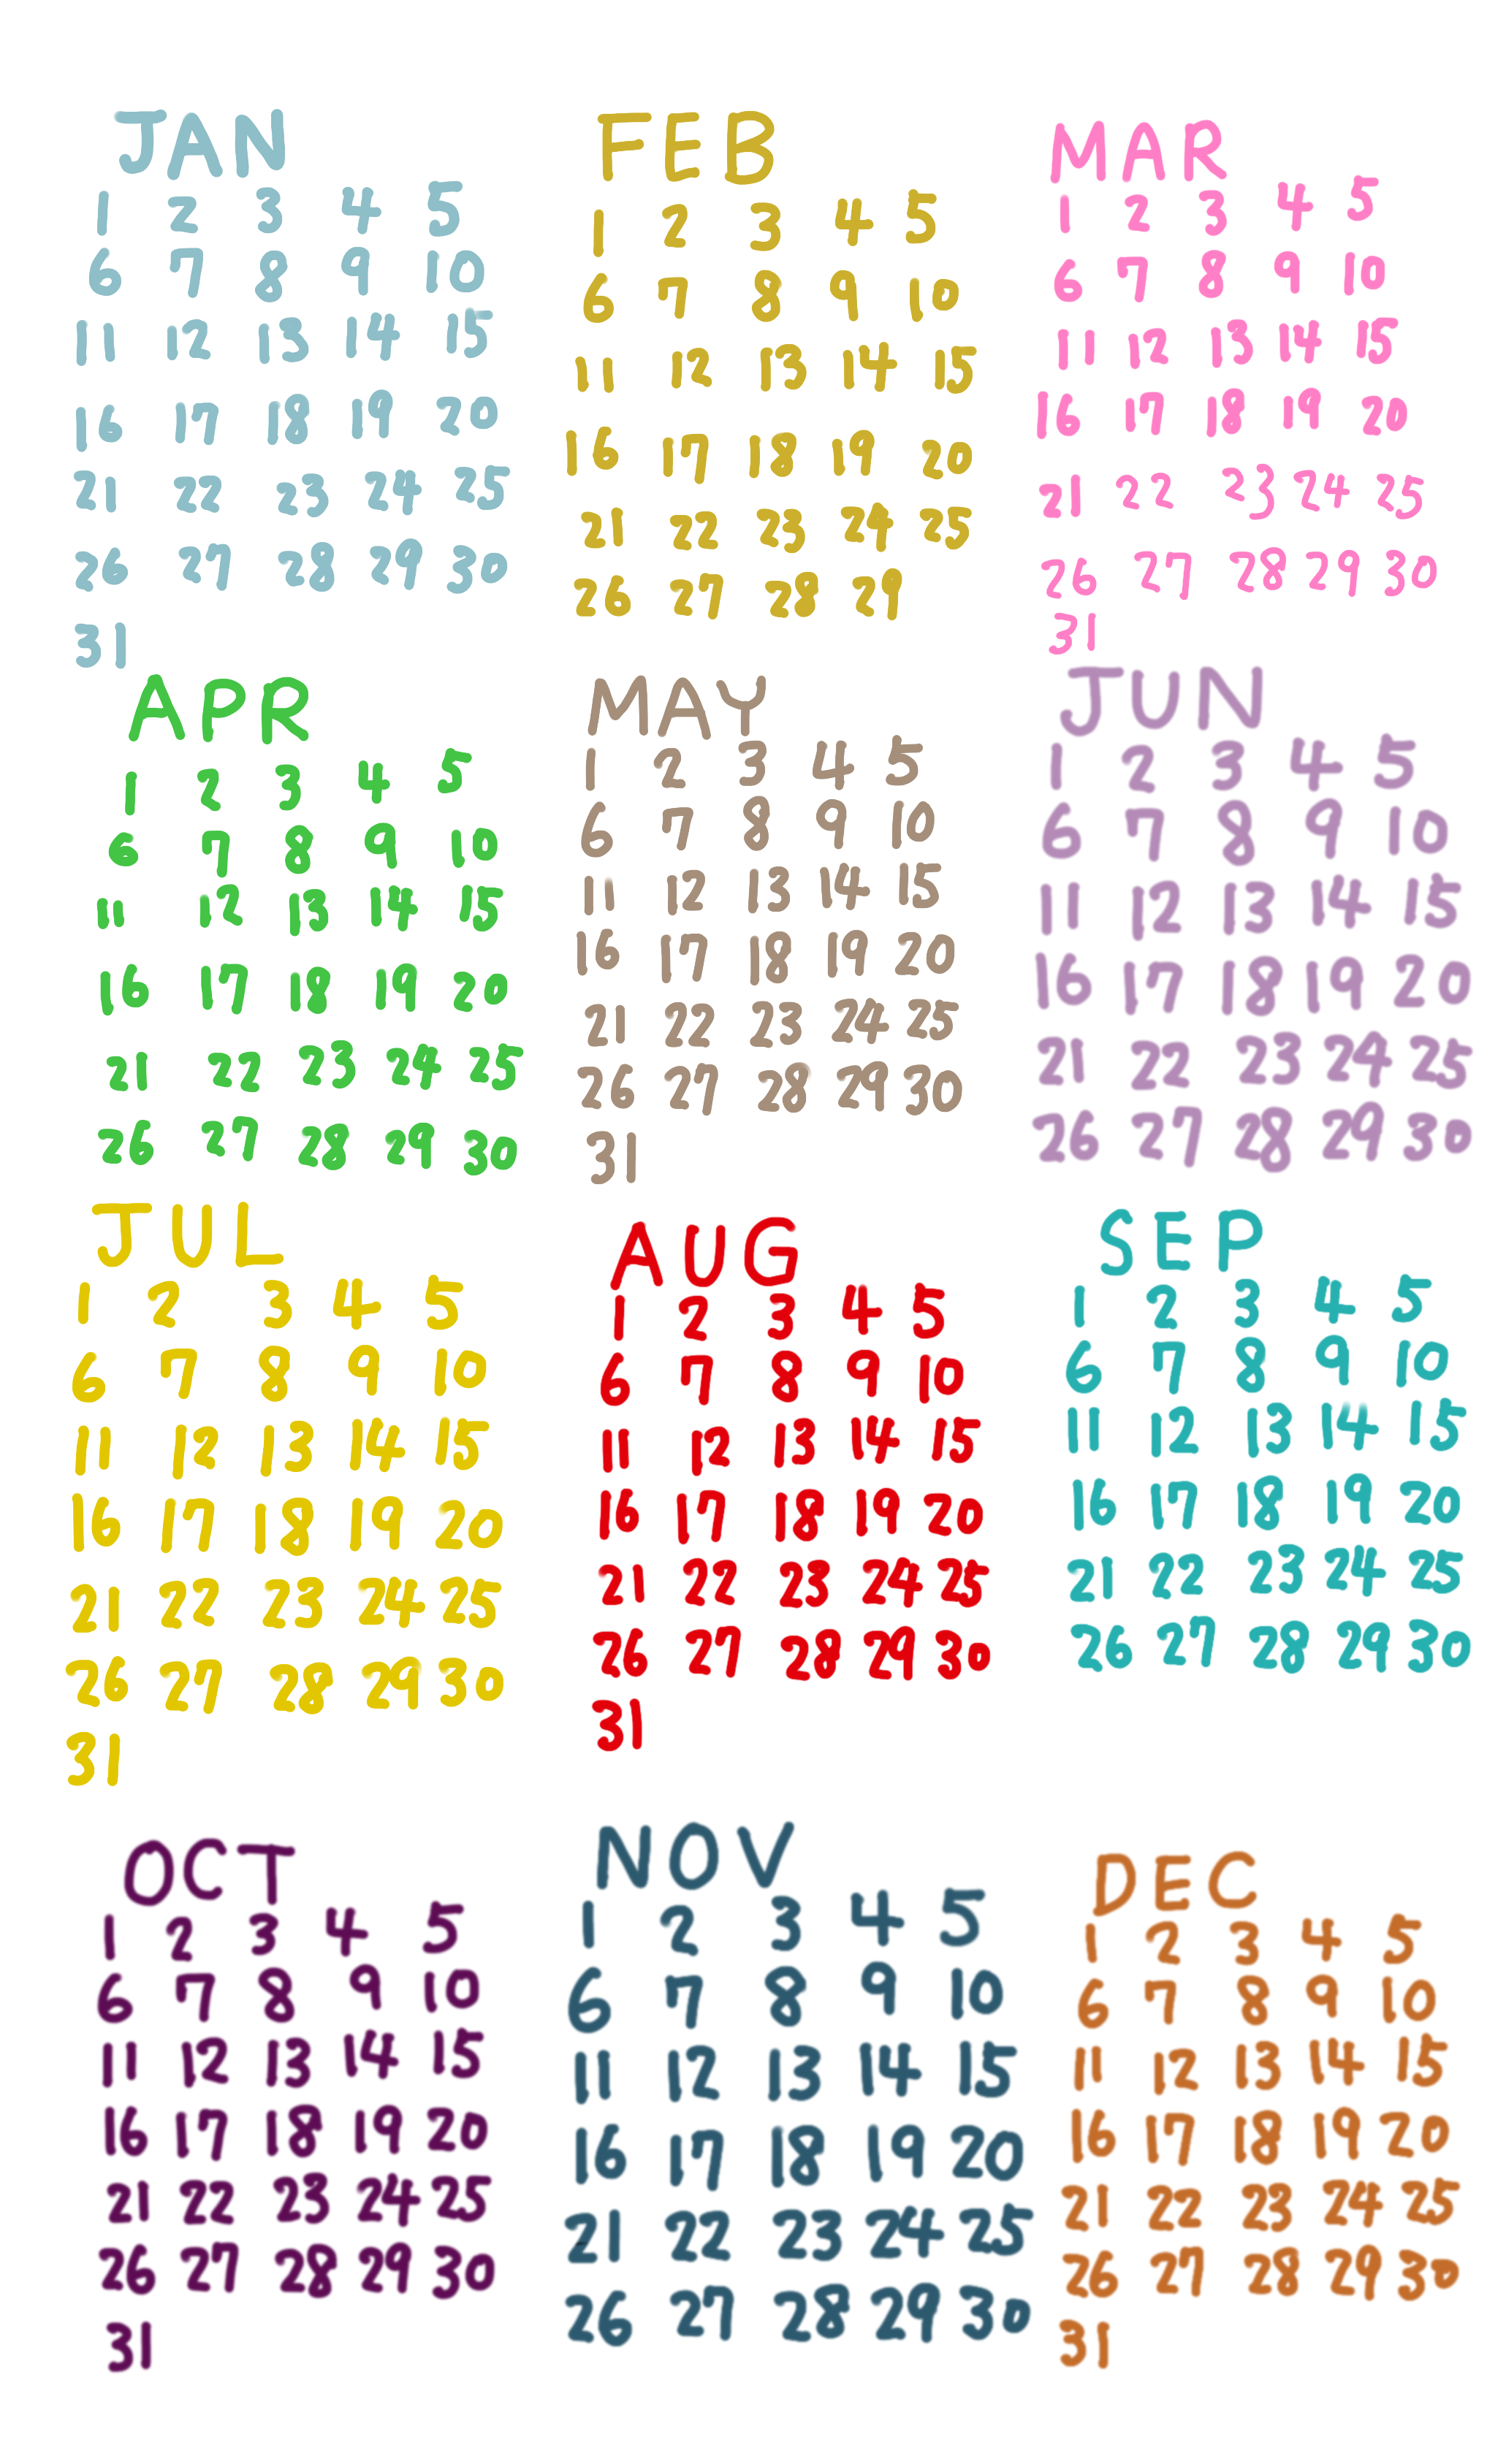 JAN
1 2 3 4 5
6 7 8 9 10
11 12 13 14 15
16 17 18 19 20
21 22 23 24 25
26 27 28 29 30
31
FEB
1 2 3 4 5
6 7 8 9 10
11 12 13 14 15
16 17 18 19 20
21 22 23 24 25
26 27 28 29
MAR
1 2 3 4 5
6 7 8 9 10
11 12 13 14 15
16 17 18 19 20
21 22 23 24 25
26 27 28 29 30
31
APR
1 2 3 4 5
6 7 8 9 10
11 12 13 14 15
16 17 18 19 20
21 22 23 24 25
26 27 28 29 30
MAY
1 2 3 4 5
6 7 8 9 10
11 12 13 14 15
16 17 18 19 20
21 22 23 24 25
26 27 28 29 30
31
JUN
1 2 3 4 5
6 7 8 9 10
11 12 13 14 15
16 17 18 19 20
21 22 23 24 25
26 27 28 29 30
JUL
1 2 3 4 5
6 7 8 9 10
11 12 13 14 15
16 17 18 19 20
21 22 23 24 25
26 27 28 29 30
31
AUG
1 2 3 4 5
6 7 8 9 10
11 12 13 14 15
16 17 18 19 20
21 22 23 24 25
26 27 28 29 30
31
SEP
1 2 3 4 5
6 7 8 9 10
11 12 13 14 15
16 17 18 19 20
21 22 23 24 25
26 27 28 29 30
OCT
1 2 3 4 5
6 7 8 9 10
11 12 13 14 15
16 17 18 19 20
21 22 23 24 25
26 27 28 29 30
31
NOV
1 2 3 4 5
6 7 8 9 10
11 12 13 14 15
16 17 18 19 20
21 22 23 24 25
26 27 28 29 30
DEC
1 2 3 4 5
6 7 8 9 10
11 12 13 14 15
16 17 18 19 20
21 22 23 24 25
26 27 28 29 30
31